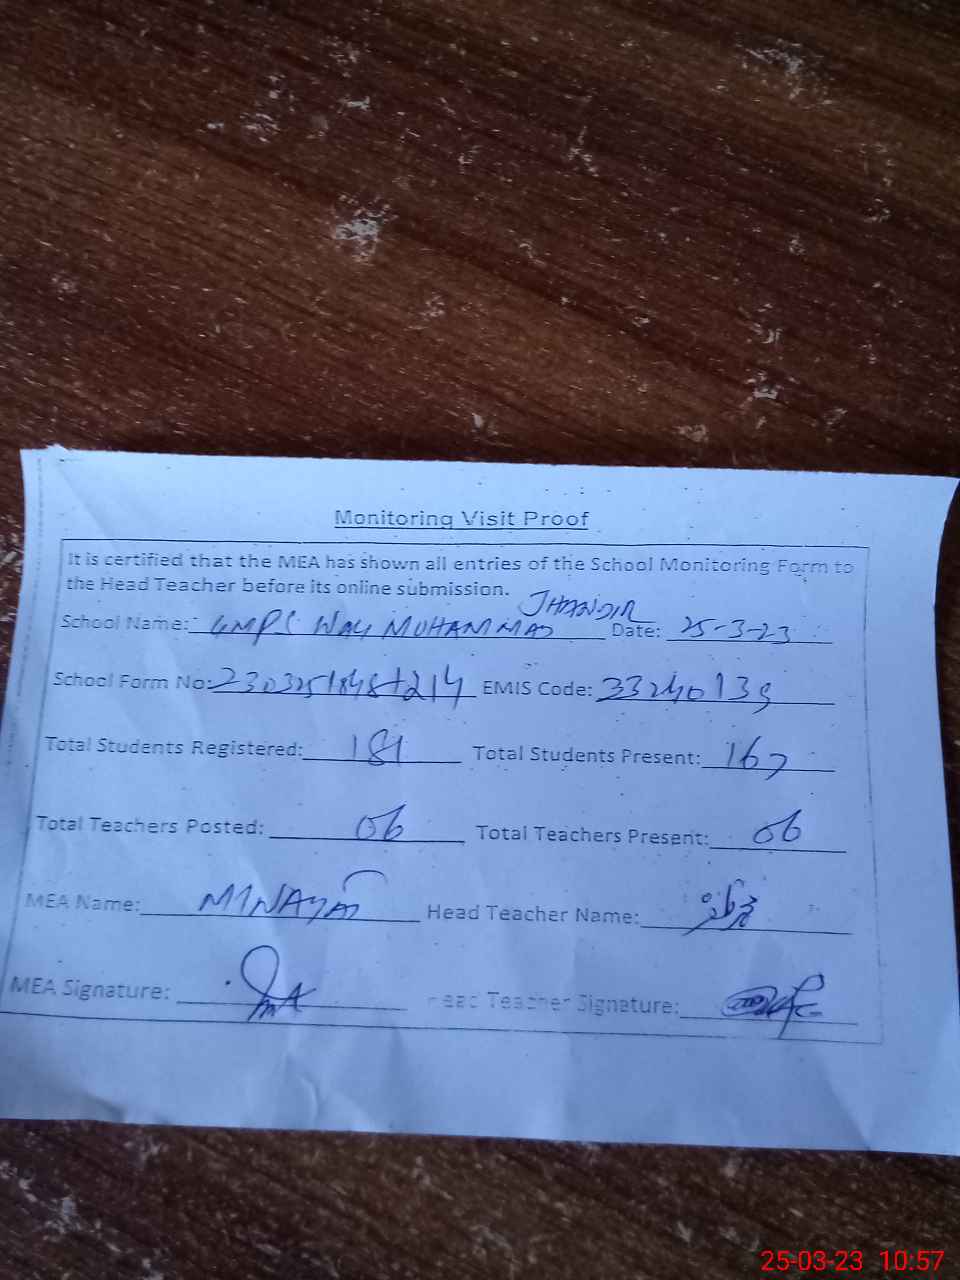 Monitoring Visit Proof
It is certified that the MEA has shown all entries of the School Monitoring Form to
the Head Teacher before its online submission.
JHANDIR
School Name: GMPS WALI MUHAMMAD Date: 25-3-23
School Form No: EMIS Code: 33240139
Total Students Registered: 181 Total Students Present: 167
Total Teachers Posted: 06 Total Teachers Present: 06
MEA Name: Head Teacher Name:
MEA Signature: Head Teacher Signature:
25-03-23 10:57